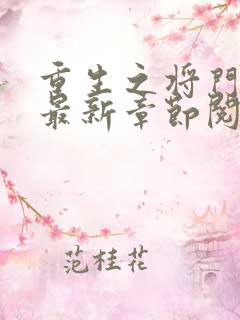 重生之将门
最新章节阅
范桂花